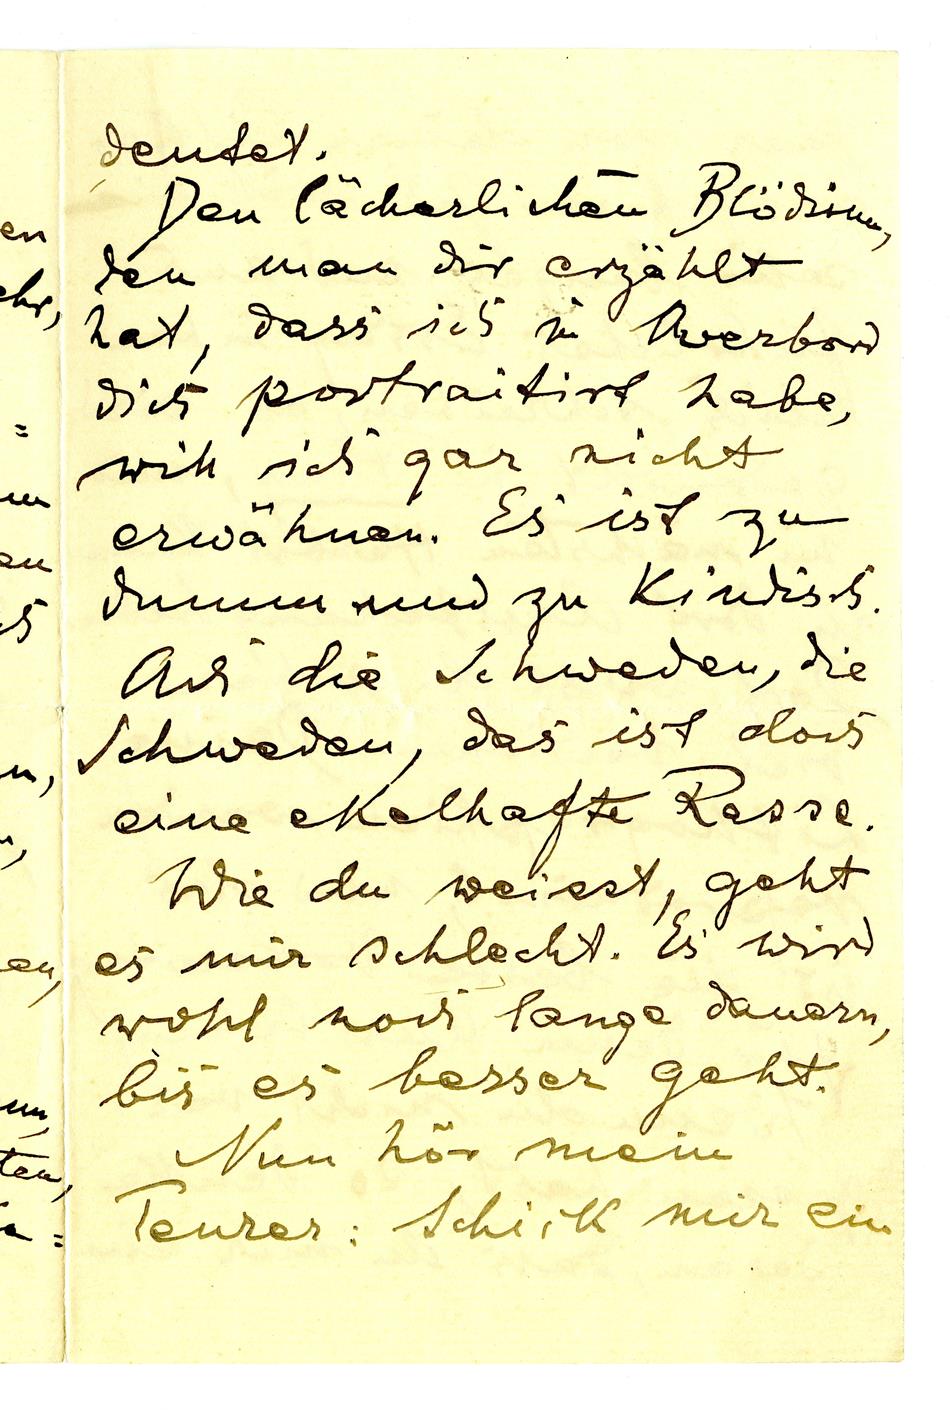 deutet.
Den lächerlichen Blödsinn,
den man dir erzählt
hat, dass ich in Overbord
dich portraitirt habe,
will ich gar nicht
erwähnen. Es ist zu
dumm und zu Kindisch.
Ach die Schweden, die
Schweden, das ist doch
eine ekelhafte Rasse.
Wie du weisst, geht
es mir schlecht. Es wird
wohl noch lange dauern,
bis es besser geht.
Nun hör mein
Teurer: Schick mir ein